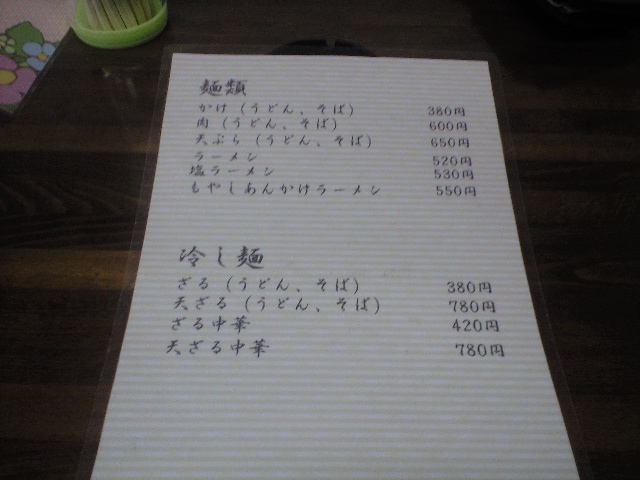 麺類
かけ（うどん、そば） 380円
肉（うどん、そば） 600円
天ぷら（うどん、そば） 650円
ラーメン 520円
塩ラーメン 530円
もやしあんかけラーメン 550円
冷し麺
ざる（うどん、そば） 380円
天ざる（うどん、そば） 780円
ざる中華 420円
天ざる中華 780円